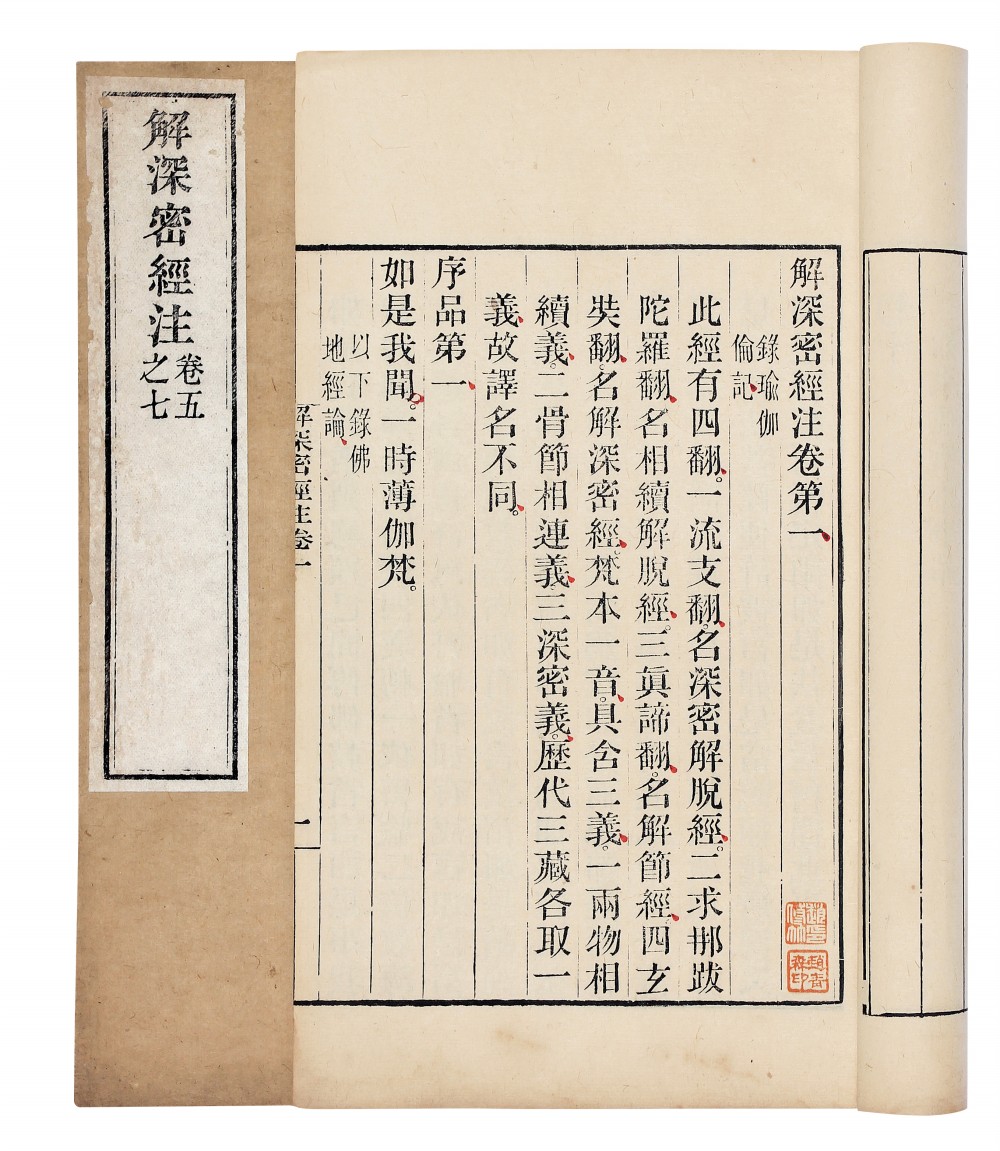 解深密經注卷五
之七
解深密經注卷第一
錄瑜伽
倫記
此經有四翻。一流支翻。名深密解脫經。二求那跋
陀羅翻。名相續解脫經。三真諦翻。名解節經。四玄
奘翻。名解深密經。梵本一音。具含三義。一兩物相
續義。二骨節相連義。三深密義。歷代三藏各取一
義。故譯名不同。
序品第一
如是我聞。一時薄伽梵。
以下錄佛
地經論
解深密經注卷一
一